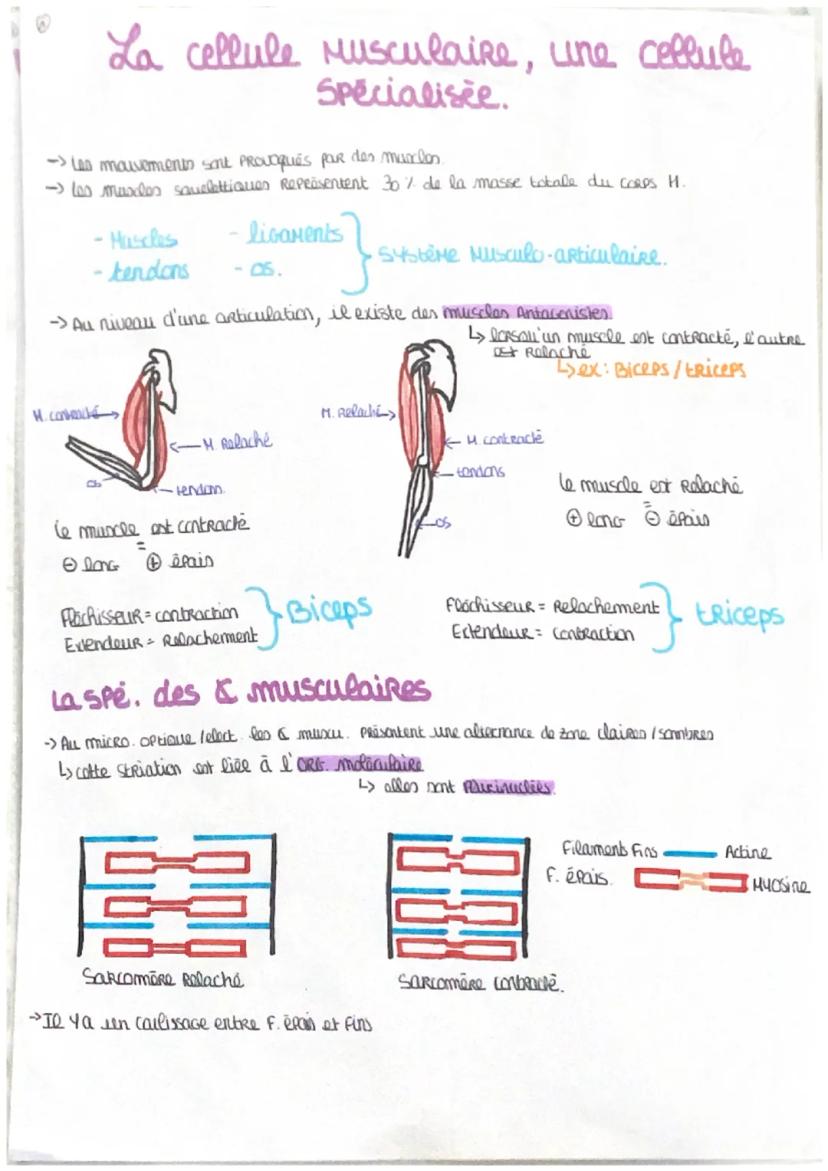 La cellule musculaire, une cellule
spécialisée.
-> Les mouvements sont provoqués par des muscles.
-> Les muscles squelettiques représentent 30 % de la masse totale du corps H.
- Muscles - ligaments
- tendons - os.
système musculo-articulaire.
-> Au niveau d'une articulation, il existe des muscles Antagonistes
↳ lorsqu'un muscle est contracté, l'autre
est Relaché
↳ ex: Biceps / triceps
M. contracté
M. Relaché
os
tendon.
M. Relaché
M. contracté
tendons
os
Le muscle est contracté
=
⊖ long ⊕ épais
Le muscle est Relaché
=
⊕ long ⊖ épais
Fléchisseur = contraction
Extendeur = Relachement
Biceps
Fléchisseur = Relachement
Extendeur = Contraction
triceps
La spé. des ₵ musculaires
-> Au micro. optique / elect. les ₵ muscu. présentent une alternance de zone claires / sombres
↳ cette striation est liée à l'ORG. moléculaire
↳ elles sont plurinucléés.
Filaments Fins Actine
F. épais. Myosine
Sarcomère Relaché
Sarcomère contracté.
-> Il y a un coulissage entre F. épais et fins